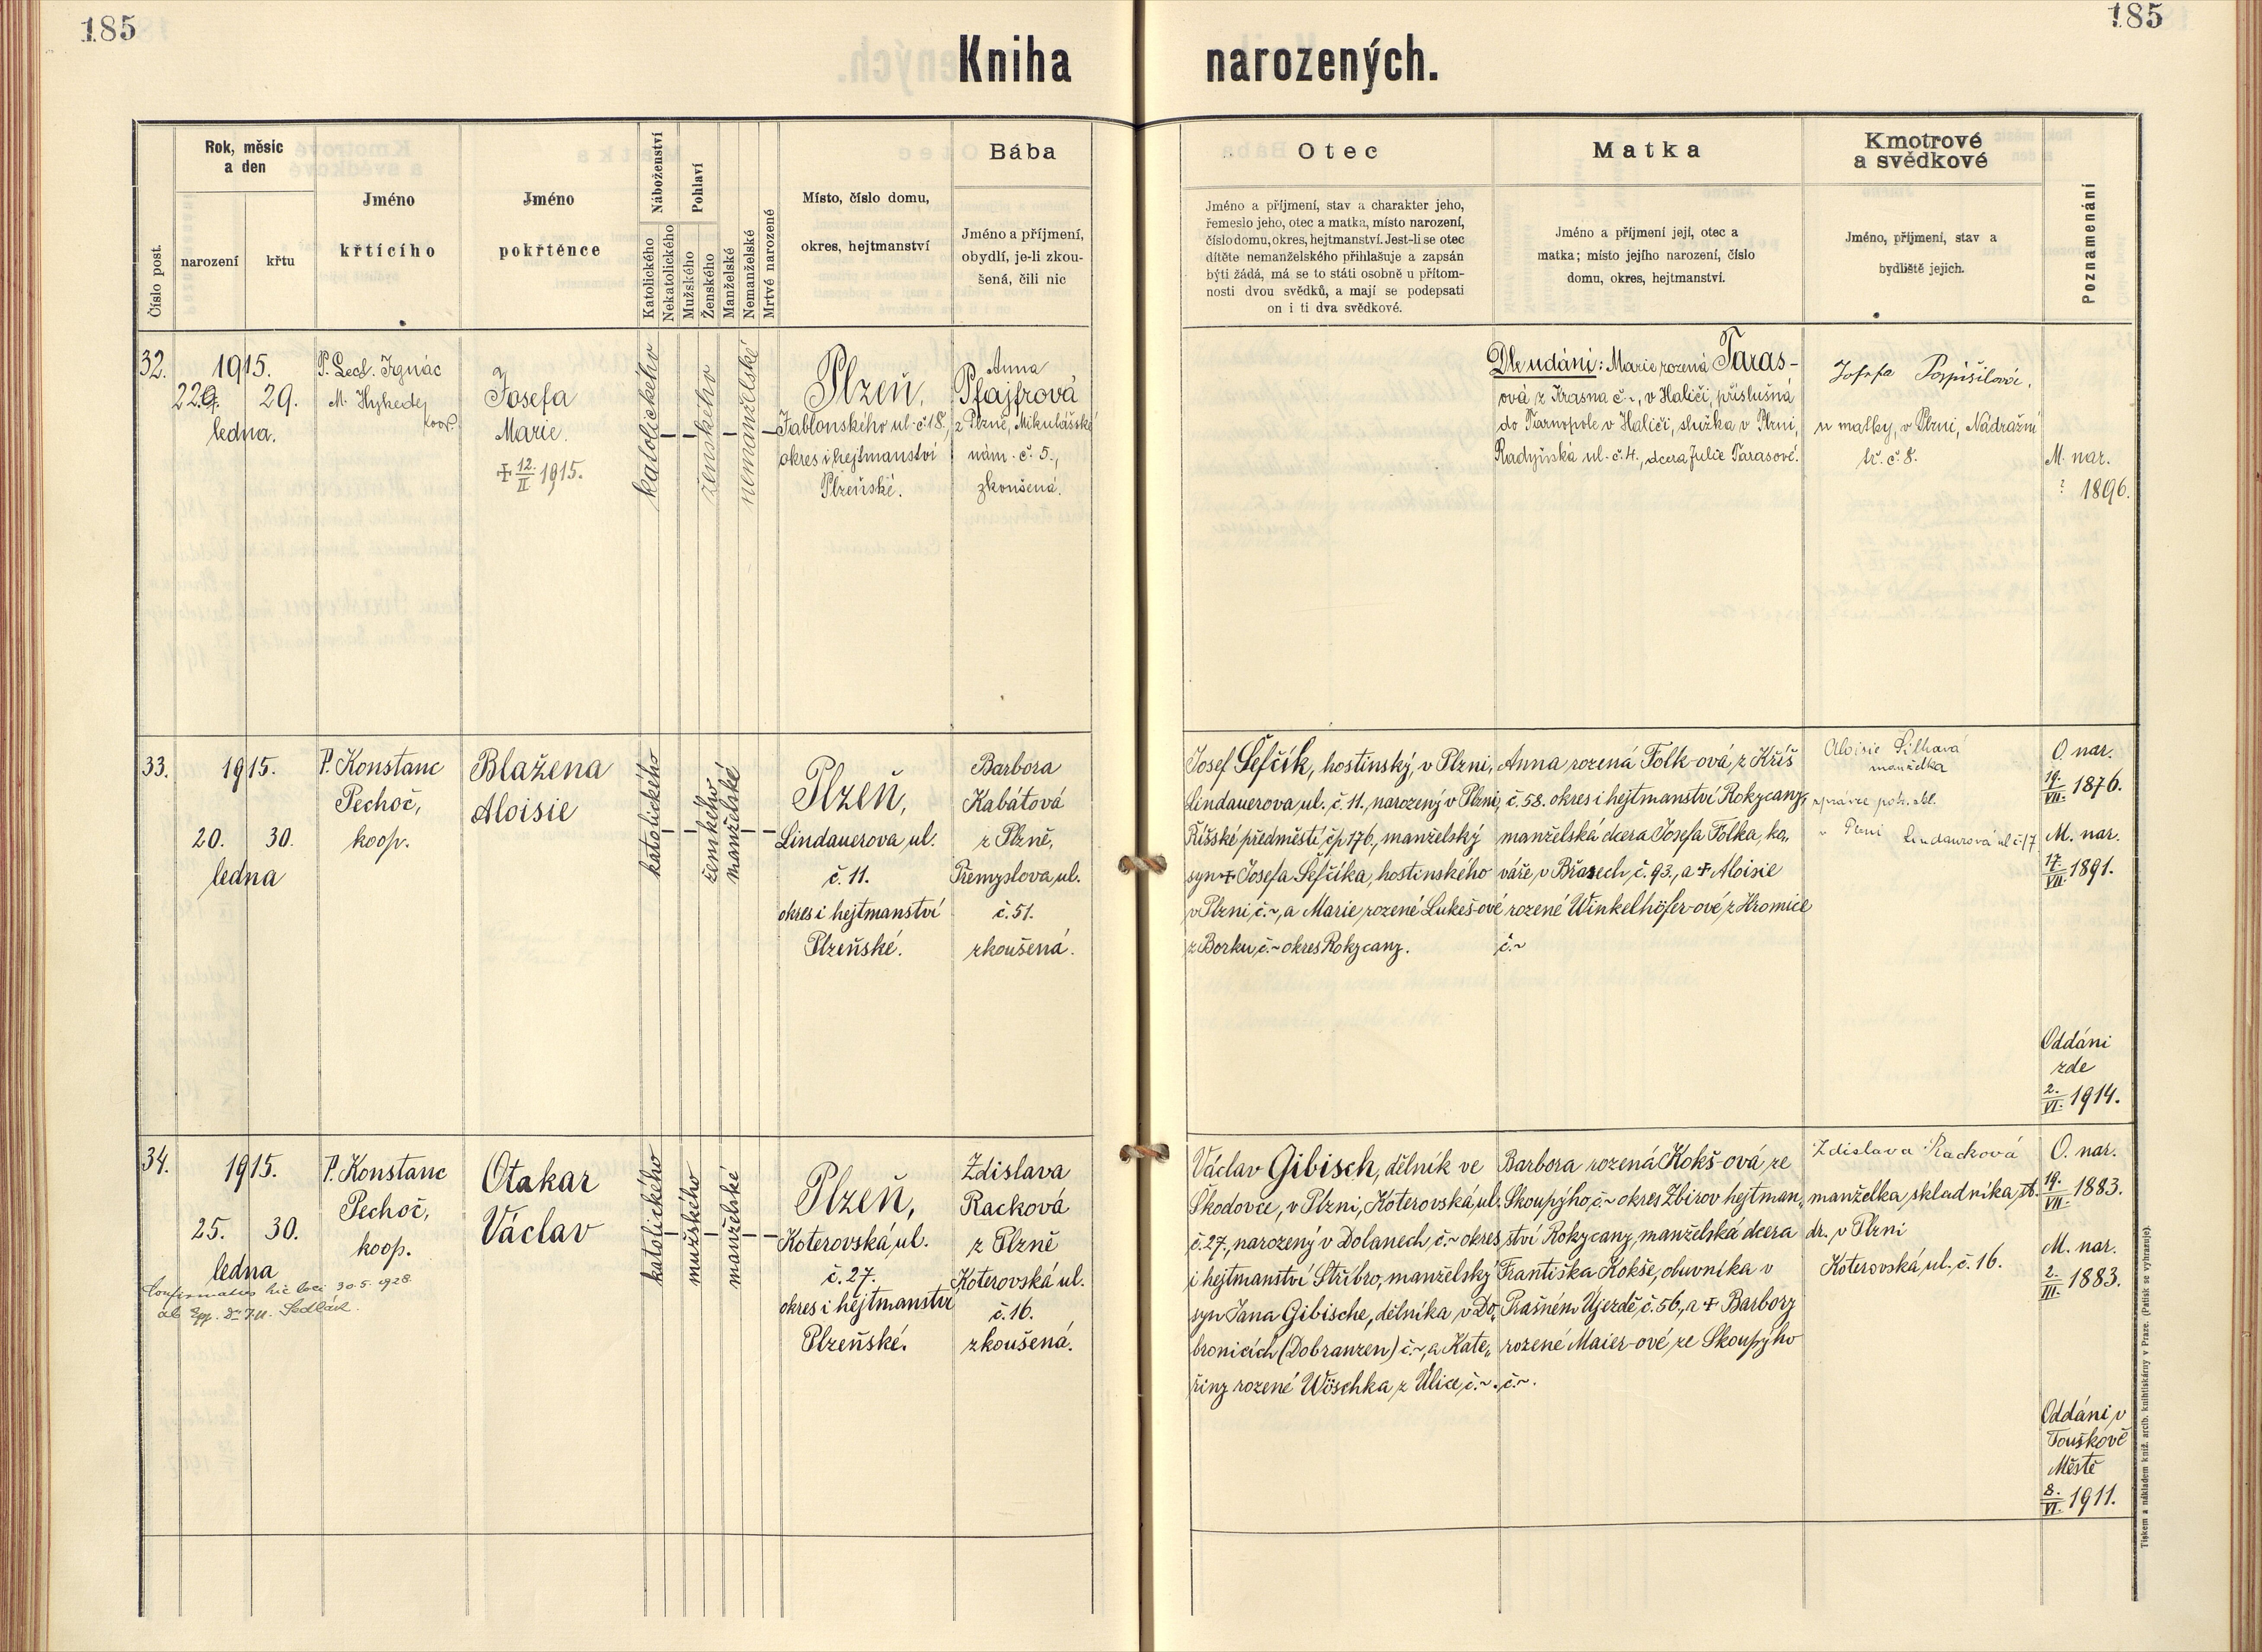 185
185
Kniha narozených.
Číslo post.
Rok, měsíc
a den
narození
křtu
Jméno
křtícího
Jméno
pokřtěnce
Náboženství
Katolického
Nekatolického
Pohlaví
Mužského
Ženského
Manželské
Nemanželské
Mrtvé narozené
Místo, číslo domu,
okres, hejtmanství
Bába
Jméno a příjmení,
obydlí, je-li zkou-
šená, čili nic
Otec
Jméno a příjmení, stav a charakter jeho,
řemeslo jeho, otec a matka, místo narození,
číslo domu, okres, hejtmanství. Jest-li se otec
dítěte nemanželského přihlašuje a zapsán
býti žádá, má se to státi osobně u přítom-
nosti dvou svědků, a mají se podepsati
on i ti dva svědkové.
Matka
Jméno a příjmení její, otec a
matka; místo jejího narození, číslo
domu, okres, hejtmanství.
Kmotrové
a svědkové
Jméno, příjmení, stav a
bydliště jejich.
Poznamenání
32.
1915.
22. 29.
ledna.
P. Ignác
M. Hykede
koop.
Josefa
Marie.
† 12./II 1915.
katolického
–
–
ženského
–
nemanželské
–
Plzeň,
Jablonského ul. č. 18.,
okres i hejtmanství
Plzeňské.
Anna
Pfajfrová
z Plzně, Mikulášské
nám. č. 5.,
zkoušená.
Dle udání: Marie rozená Taras-
ová z Krasna č. ~, v Haliči, příslušná
do Tarnopole v Haliči, služka v Plzni,
Radyňská ul. č. 4., dcera Julie Tarasové.
Josefa Pospíšilová,
u matky, v Plzni, Nádražní
tř. č. 8.
M. nar.
? 1896.
33.
1915.
20. 30.
ledna
P. Konstanc
Pechoč,
koop.
Blažena
Aloisie
katolického
–
–
ženského
manželské
–
–
Plzeň,
Lindauerova ul.
č. 11.
okres i hejtmanství
Plzeňské.
Barbora
Kabátová
z Plzně,
Přemyslova ul.
č. 51.
zkoušená.
Josef Šefčík, hostinský, v Plzni,
Lindauerova ul. č. 11., narozený v Plzni,
Říšské předměstí čp 176., manželský
syn † Josefa Šefčíka, hostinského
v Plzni č. ~, a Marie rozené Lukeš-ové
z Borku č. ~ okres Rokycany.
Anna rozená Folk-ová z Kříš
č. 58. okres i hejtmanství Rokycany,
manželská dcera Josefa Folka, ko„
váře v Břasech č. 93., a † Aloisie
rozené Winkelhöfer-ové z Hromice
č. ~
Aloisie Šilhavá
manželka
správce poh.
v Plzni Lindaurová ul č. 17
O. nar.
19./VII. 1876.
M. nar.
17./VII. 1891.
Oddáni
zde
2./VI. 1914.
34.
1915.
25. 30.
ledna
Confirmatus hic loci 30.5.1928.
ab Epp. Dr Sedlák.
P. Konstanc
Pechoč,
koop.
Otakar
Václav
katolického
–
mužského
–
manželské
–
–
Plzeň,
Koterovská ul.
č. 27.
okres i hejtmanství
Plzeňské.
Zdislava
Racková
z Plzně
Koterovská ul.
č. 16.
zkoušená.
Václav Gibisch, dělník ve
Škodovce, v Plzni, Koterovská ul.
č. 27., narozený v Dolanech č. ~ okres
i hejtmanství Stříbro, manželský
syn Jana Gibische, dělníka v Do„
bronicích (Dobranzen) č. ~, a Kate„
řiny rozené Wöschka z Ulice č. ~.
Barbora rozená Kokš-ová ze
Skoupýho č. ~ okres Zbirov hejtman„
ství Rokycany, manželská dcera
Františka Kokše, obuvníka v
Prašném Újezdě č. 56., a † Barbory
rozené Maier-ové ze Skoupýho
č. ~.
Zdislava Racková
manželka skladníka st.
dr. v Plzni
Koterovská ul., č. 16.
O. nar.
19./VII. 1883.
M. nar.
2./III. 1883.
Oddáni v
Touškově
Městě
8./VI. 1911.
Tiskem a nákladem kníž. arcib. knihtiskárny v Praze. (Patisk se vyhrazuje).